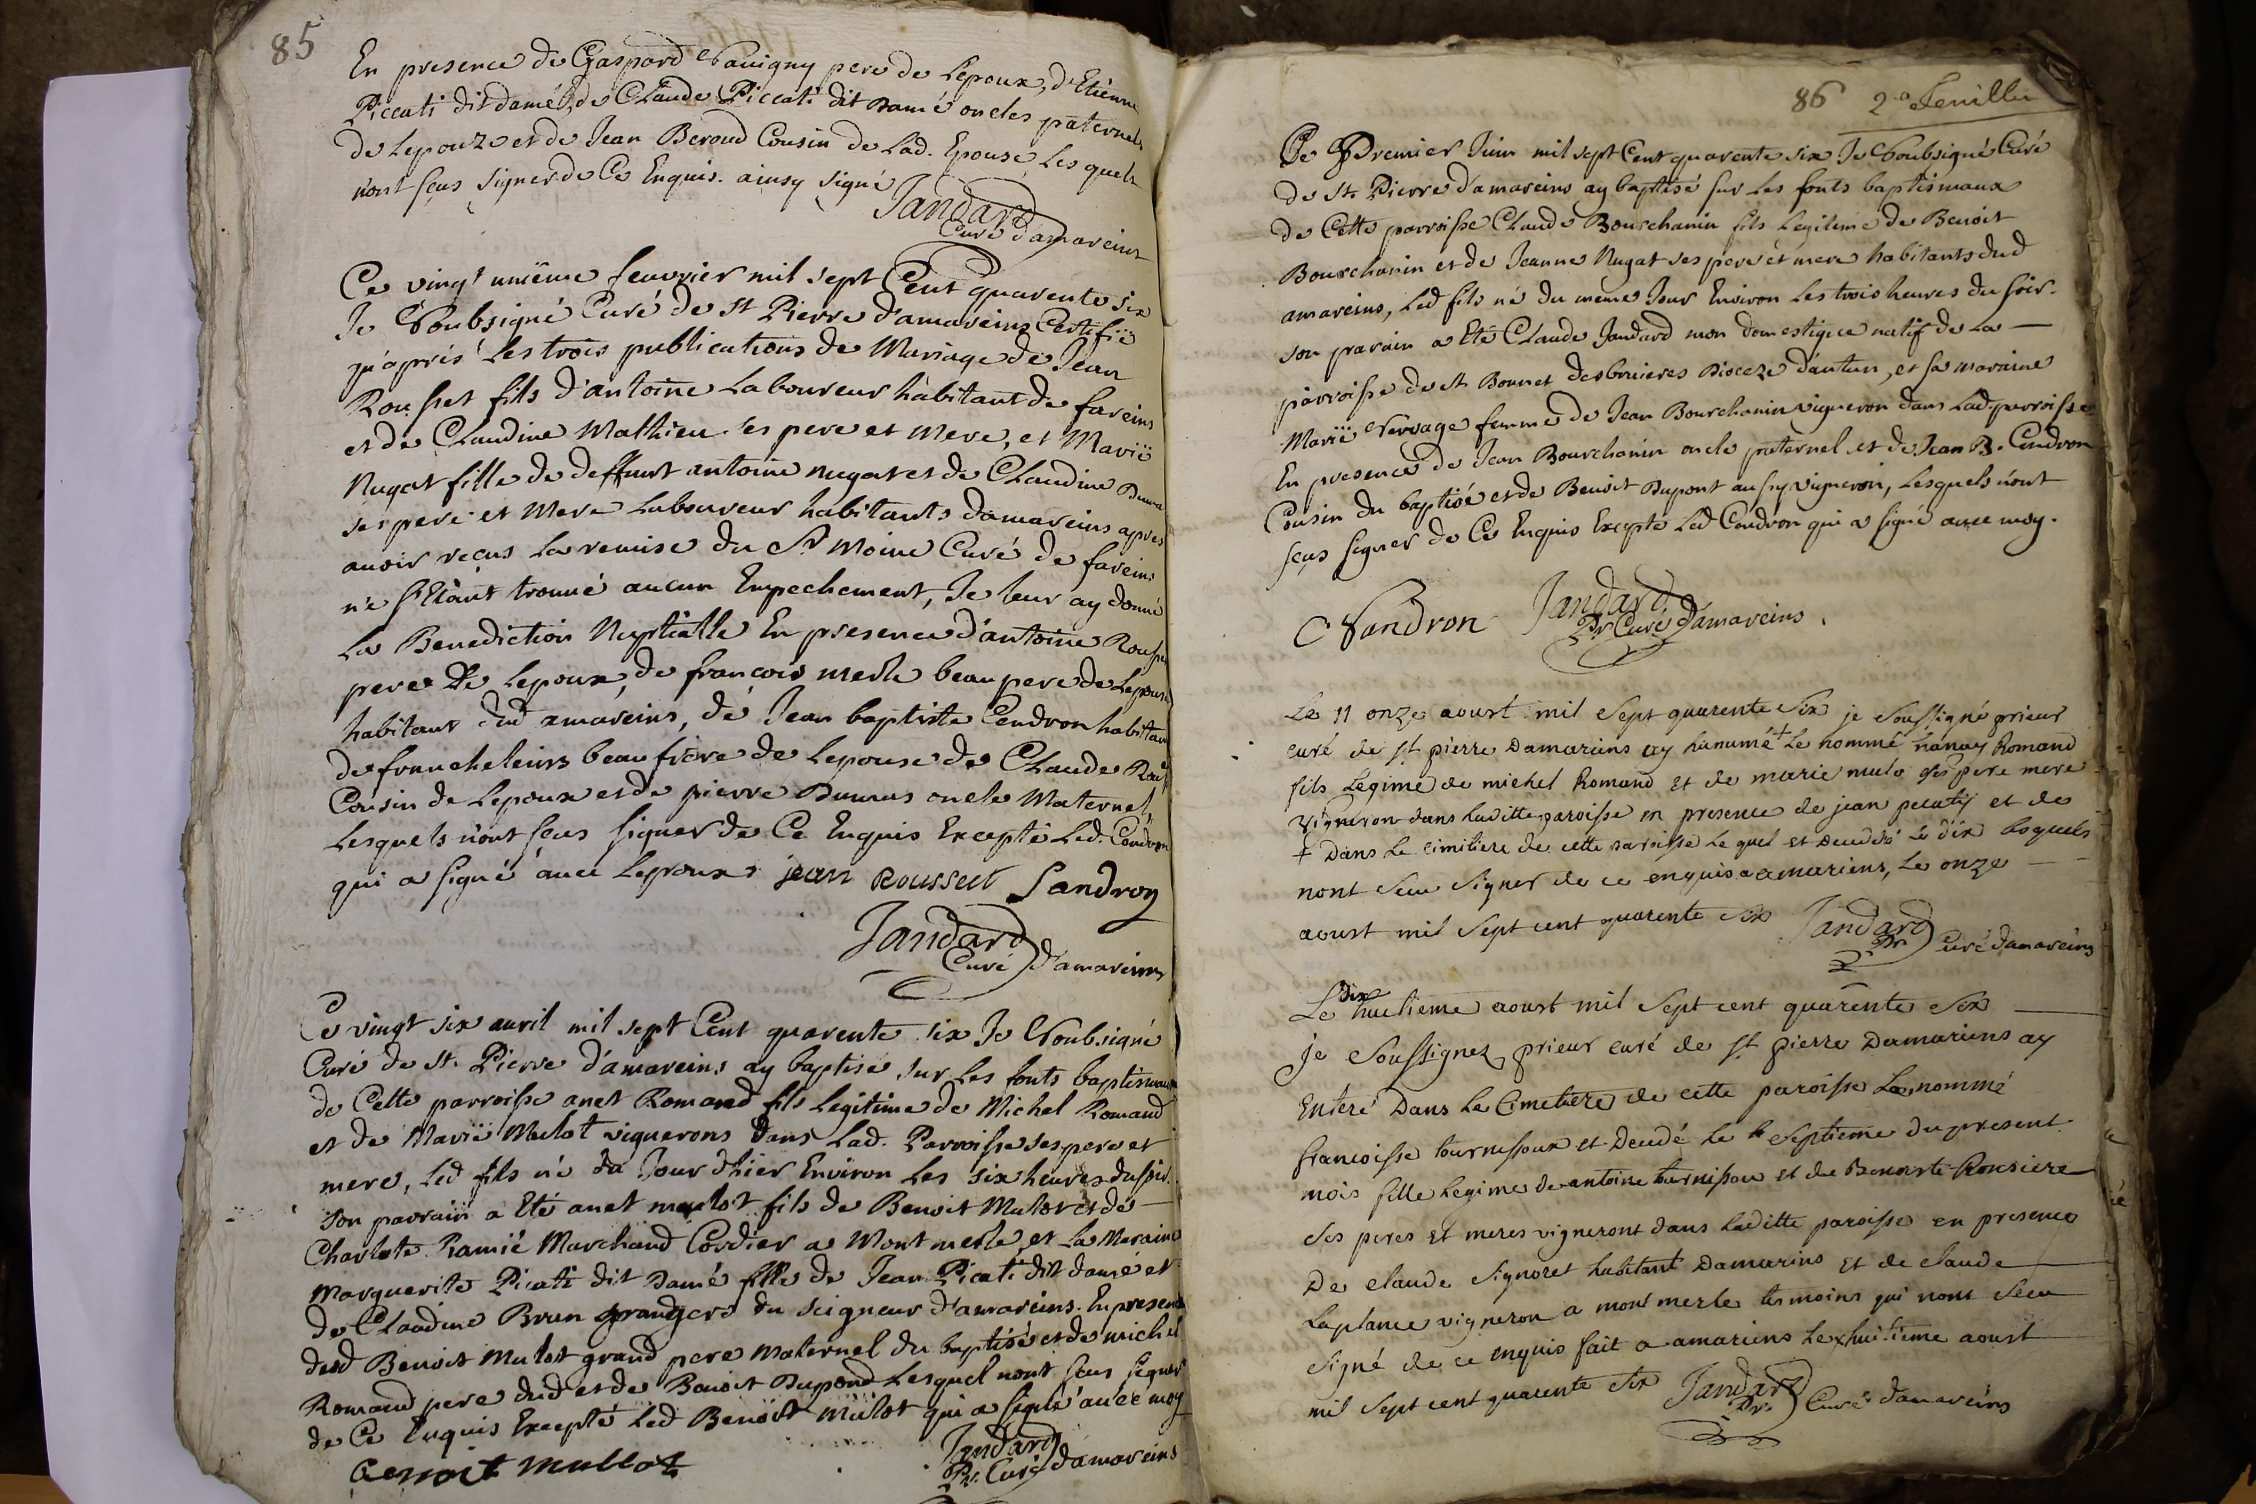 85
En presence de Gaspard Sauigny pere de Lepoux, d'Etienne
Piccati dit damé, de Claude Piccati dit Damé oncles paternels
de Lepouze et de Jean Beroud Cousin de Lad. Epouse, Lesquels
n'ont sçus signer de Ce Enquis. ainsy signé
Jandard
Curé d'amareins
Ce vingt unième feuvrier mil sept Cent quarente six
Je Soubsigné Curé de St Pierre d'amareins Certifië
qu'après Les trois publications de Mariage de Jean
Rousset fils d'antoine Laboureur habitant de fareins
et de Claudine Mathieu ses pere et Mere, et Marië
Nugat fille de deffunt antoine nugat et de Claudine
ses pere et Mere Laboureur habitants damareins apres
auoir reçus La remise du Sr Moine Curé de fareins
ne s'Etant trouué aucun Empechement, Je leur ay donné
La Benediction Nuptialle En presence d'antoine Rousset
pere De Lepoux, de francois merle beau pere de Lepouse
habitant dud amareins, de Jean baptiste Cendron habitant
de francheleins beau frere de Lepouse de Claude
Cousin de Lepoux et de pierre Dumas oncle Maternel,
Lesquels n'ont sçus signer de Ce Enquis Excepté Led. Cendron
qui a signé auec Lepoux. jean Roussett Sandron
Jandard
Curé d'amareins
Ce vingt six auril mil sept Cent quarente six Je Soubsigné
Curé de St. Pierre d'amareins ay baptisé sur Les fonts baptismaux
de Cette parroisse anet Romand fils Legitime de Michel Romand
et de Marië Mulot vignerons dans Lad. Parroisse ses pere et
mere, Led fils né du Jour d'hier Environ Les six heures du soir.
son parrain a Eté anet mulot fils de Benoit Mulot et de
Charlote Ramié Marchand Cordier a Montmerle, et La Maraine
Marguerite Picati dit Damé fille de Jean Picati dit damé et
de Claudine Brun grangers du seigneur d'amareins. En presence
dud Benoit Mulot grand pere maternel du baptisé et de michel
Romand pere dud et de Benoit Dupond Lesquel nont sçus signer
de Ce Enquis Excepté Led Benoit Mulot qui a signé auec moy
Benoit Mullot
Jandard
Pr. Curé damareins
86 2e feuille
Ce Premier Juin mil sept Cent quarente six Je Soubsigné Curé
de St. Pierre d'amareins ay baptisé sur Les fonts baptismaux
de Cette parroisse Claude Bourchanin fils Legitime de Benoit
Bourchanin et de Jeanne Nugat ses pere et mere habitants dud
amareins, Led fils né du meme Jour Environ Les trois heures du soir.
son parain a Eté Claude Jandard mon domestique natif de La
parroisse de St. Bonnet desbruieres Dioceze d'autun, et sa maraine
Marië Sauvage femme de Jean Bourchanin vigneron dans Lad. parroisse
En presence de Jean Bourchanin oncle paternel et de Jean B. Cendron
Cousin du baptisé et de Benoit Dupont aussy vigneron, Lesquels n'ont
sçus signer de Ce Enquis Excepté Led Cendron qui a signé auec moy.
Sandron Jandard
Pr Curé d'amareins.
Le 11 onze aoust mil sept quarente six je soussigné prieur
curé de st pierre Damarins ay hunumé + Le nommé Romand
fils Legime de michel Romand et de marie mulo ses pere mere
vigneron dans laditte paroisse en presence de jean pecaty et de
+ Dans Le cimitiere de cette paroisse Le quel et decedé Le dix Lesquels
nont sceu signer de ce enquis a amariens, Le onze
aoust mil sept cent quarente six Jandard
Pr Curé damareins
Le dix huetieme aoust mil sept cent quarente six
je soussignez prieur curé de st pierre Damariens ay
Enteré Dans Le Cimetiere de cette paroisse La nommé
francoisse tournissoux et Decedé Le septieme du present
mois fille Legime de antoine turnissou et de Benoiste Ronsiere
ses peres et meres vigneront dans Laditte paroisse en presence
De claude signoret habitant Damarins et de claude
Laplance vigneron a mont merle tesmoins qui nont sceu
signé de ce enquis fait a amariens Le xhuitieme aoust
mil sept cent quarente six Jandard
Pr. Curé damareins